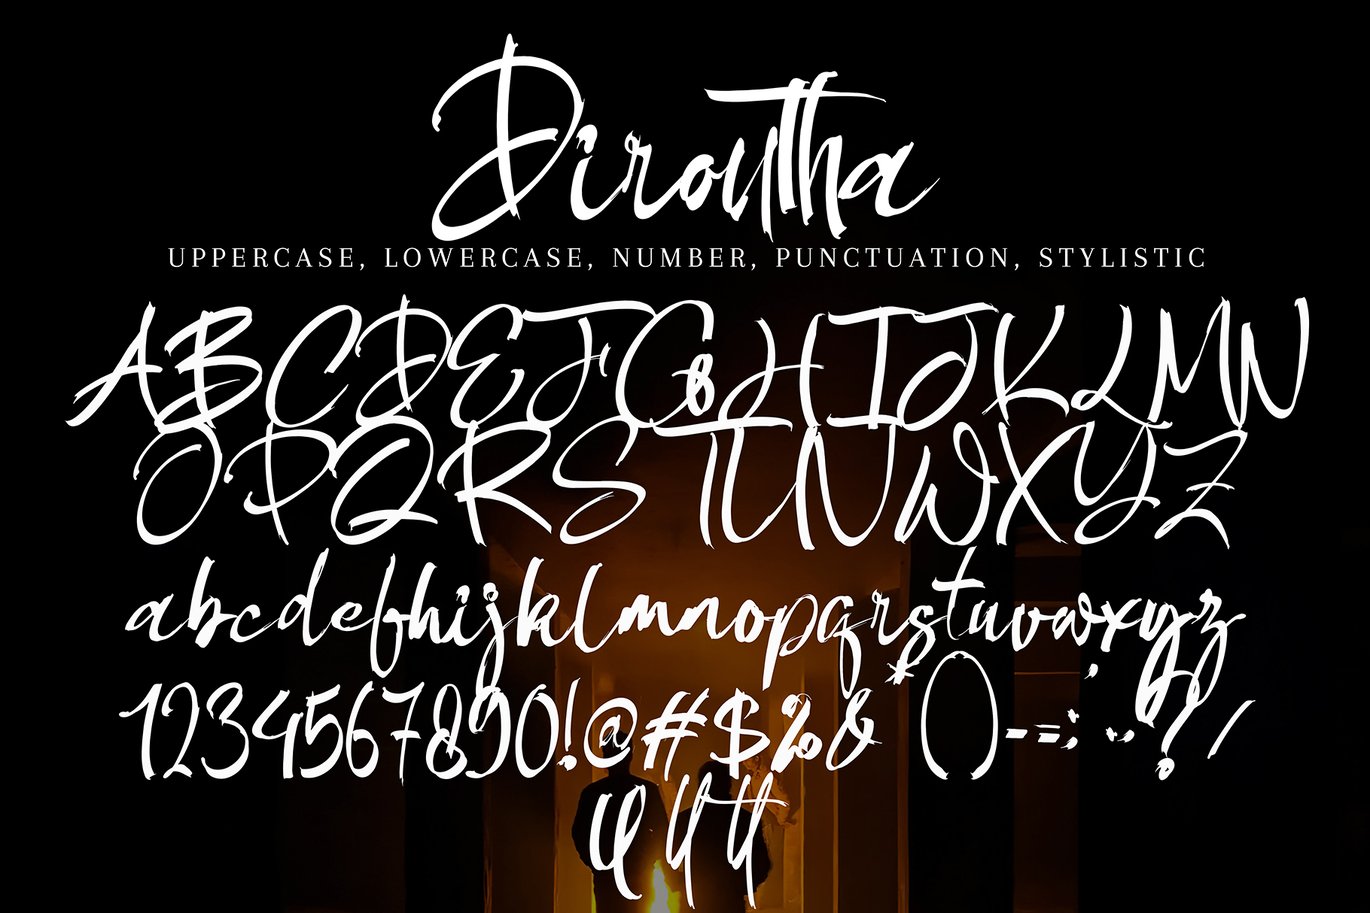 Diroutha
UPPERCASE, LOWERCASE, NUMBER, PUNCTUATION, STYLISTIC
ABCDEFGHIJKLMN
OPQRSTUVWXYZ
abcdefhijklmnopqrstuvwxyz
1234567890!@#$%&*()-=;:,.?/